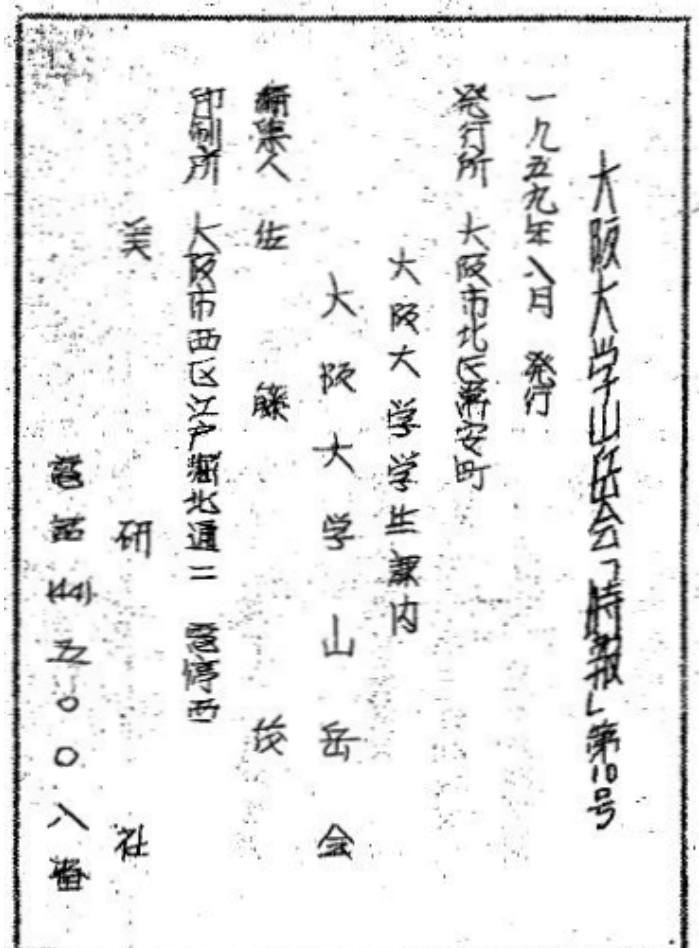 大阪大学山岳会「時報」第10号
一九五九年八月 発行
発行所 大阪市北区常安町
大阪大学学生課内
大阪大学山岳会
編集人 佐藤茂
印刷所 大阪市西区江戸堀北通二 電停西
美研社
電話(44)五〇〇八番